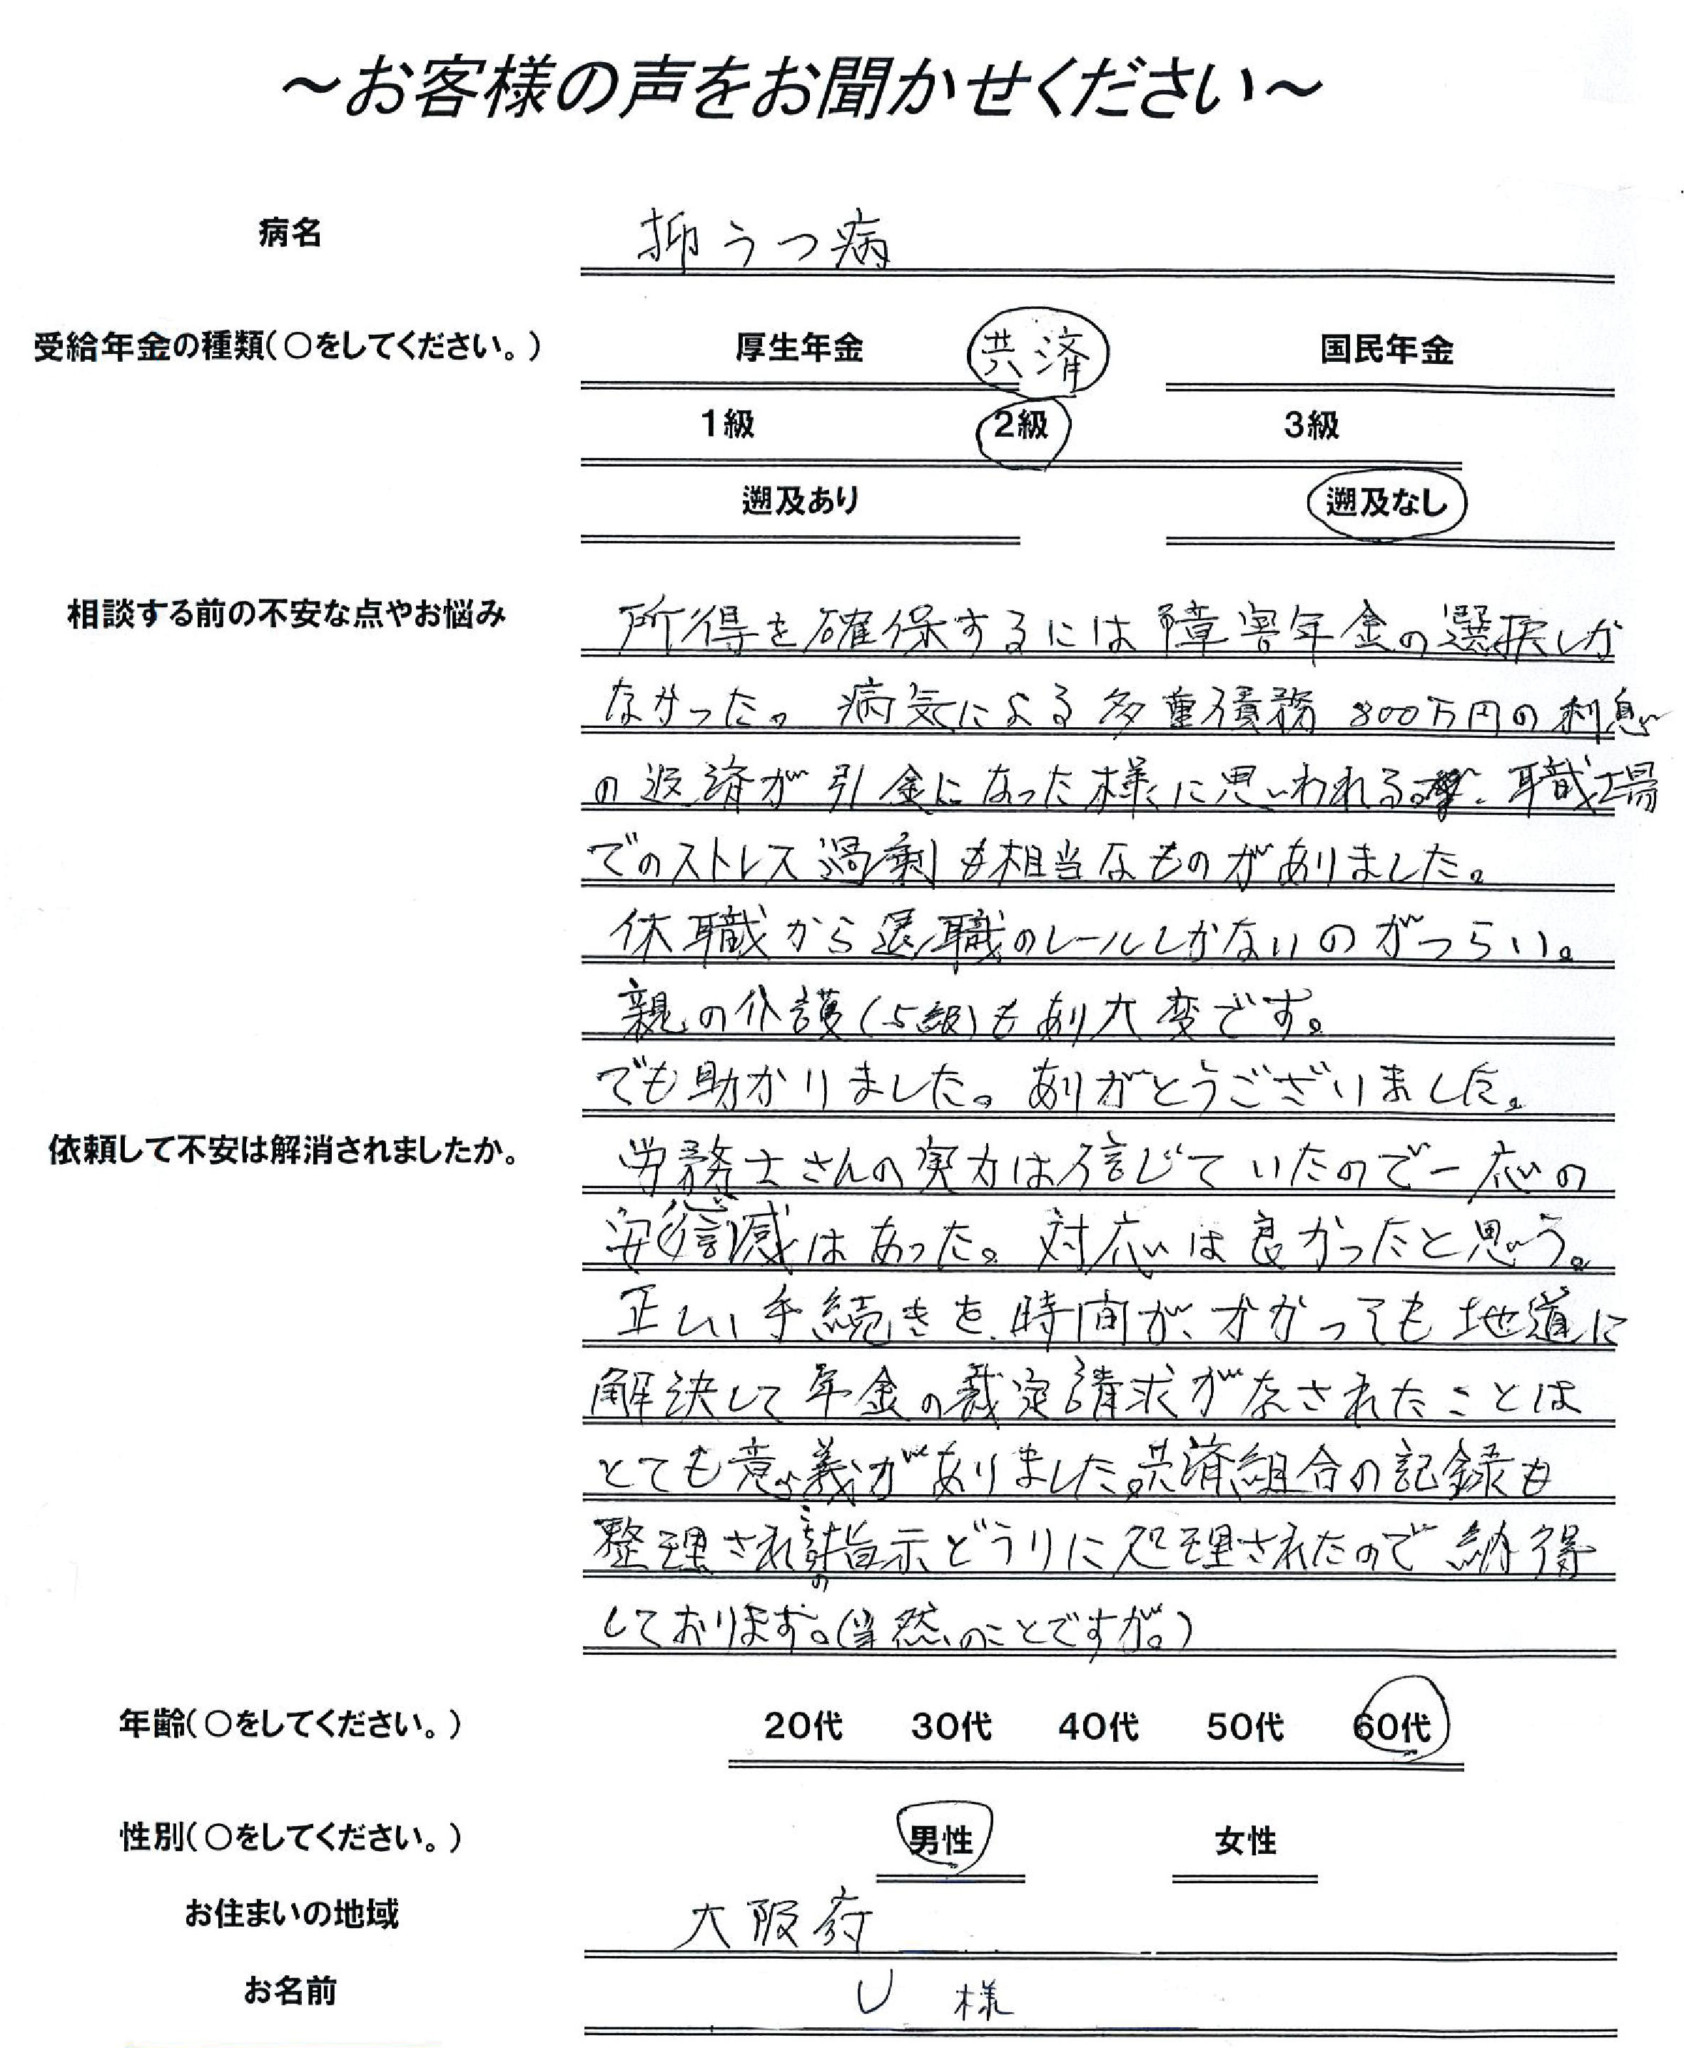 ～お客様の声をお聞かせください～
病名 抑うつ病
受給年金の種類(○をしてください。) 厚生年金 共済 国民年金
1級 2級 3級
遡及あり 遡及なし
相談する前の不安な点やお悩み 所得を確保するには障害年金の選択しか
なかった。病気による多重債務800万円の利息
の返済が引金になった様に思われる。職場
でのストレス過剰も相当なものがありました。
休職から退職のレールしかないのがつらい。
親の介護(5級)もあり大変です。
でも助かりました。ありがとうございました。
依頼して不安は解消されましたか。 労務士さんの実力は信じていたので一応の
安信感はあった。対応は良かったと思う。
正しい手続きを、時間が、かかっても地道に
解決して年金の裁定請求が為されたことは
とても意義がありました。共済組合の記録も
整理されこちらの指示どうりに処理されたので納得
しております。(当然のことですが。)
年齢(○をしてください。) 20代 30代 40代 50代 60代
性別(○をしてください。) 男性 女性
お住まいの地域 大阪府
お名前 U 様